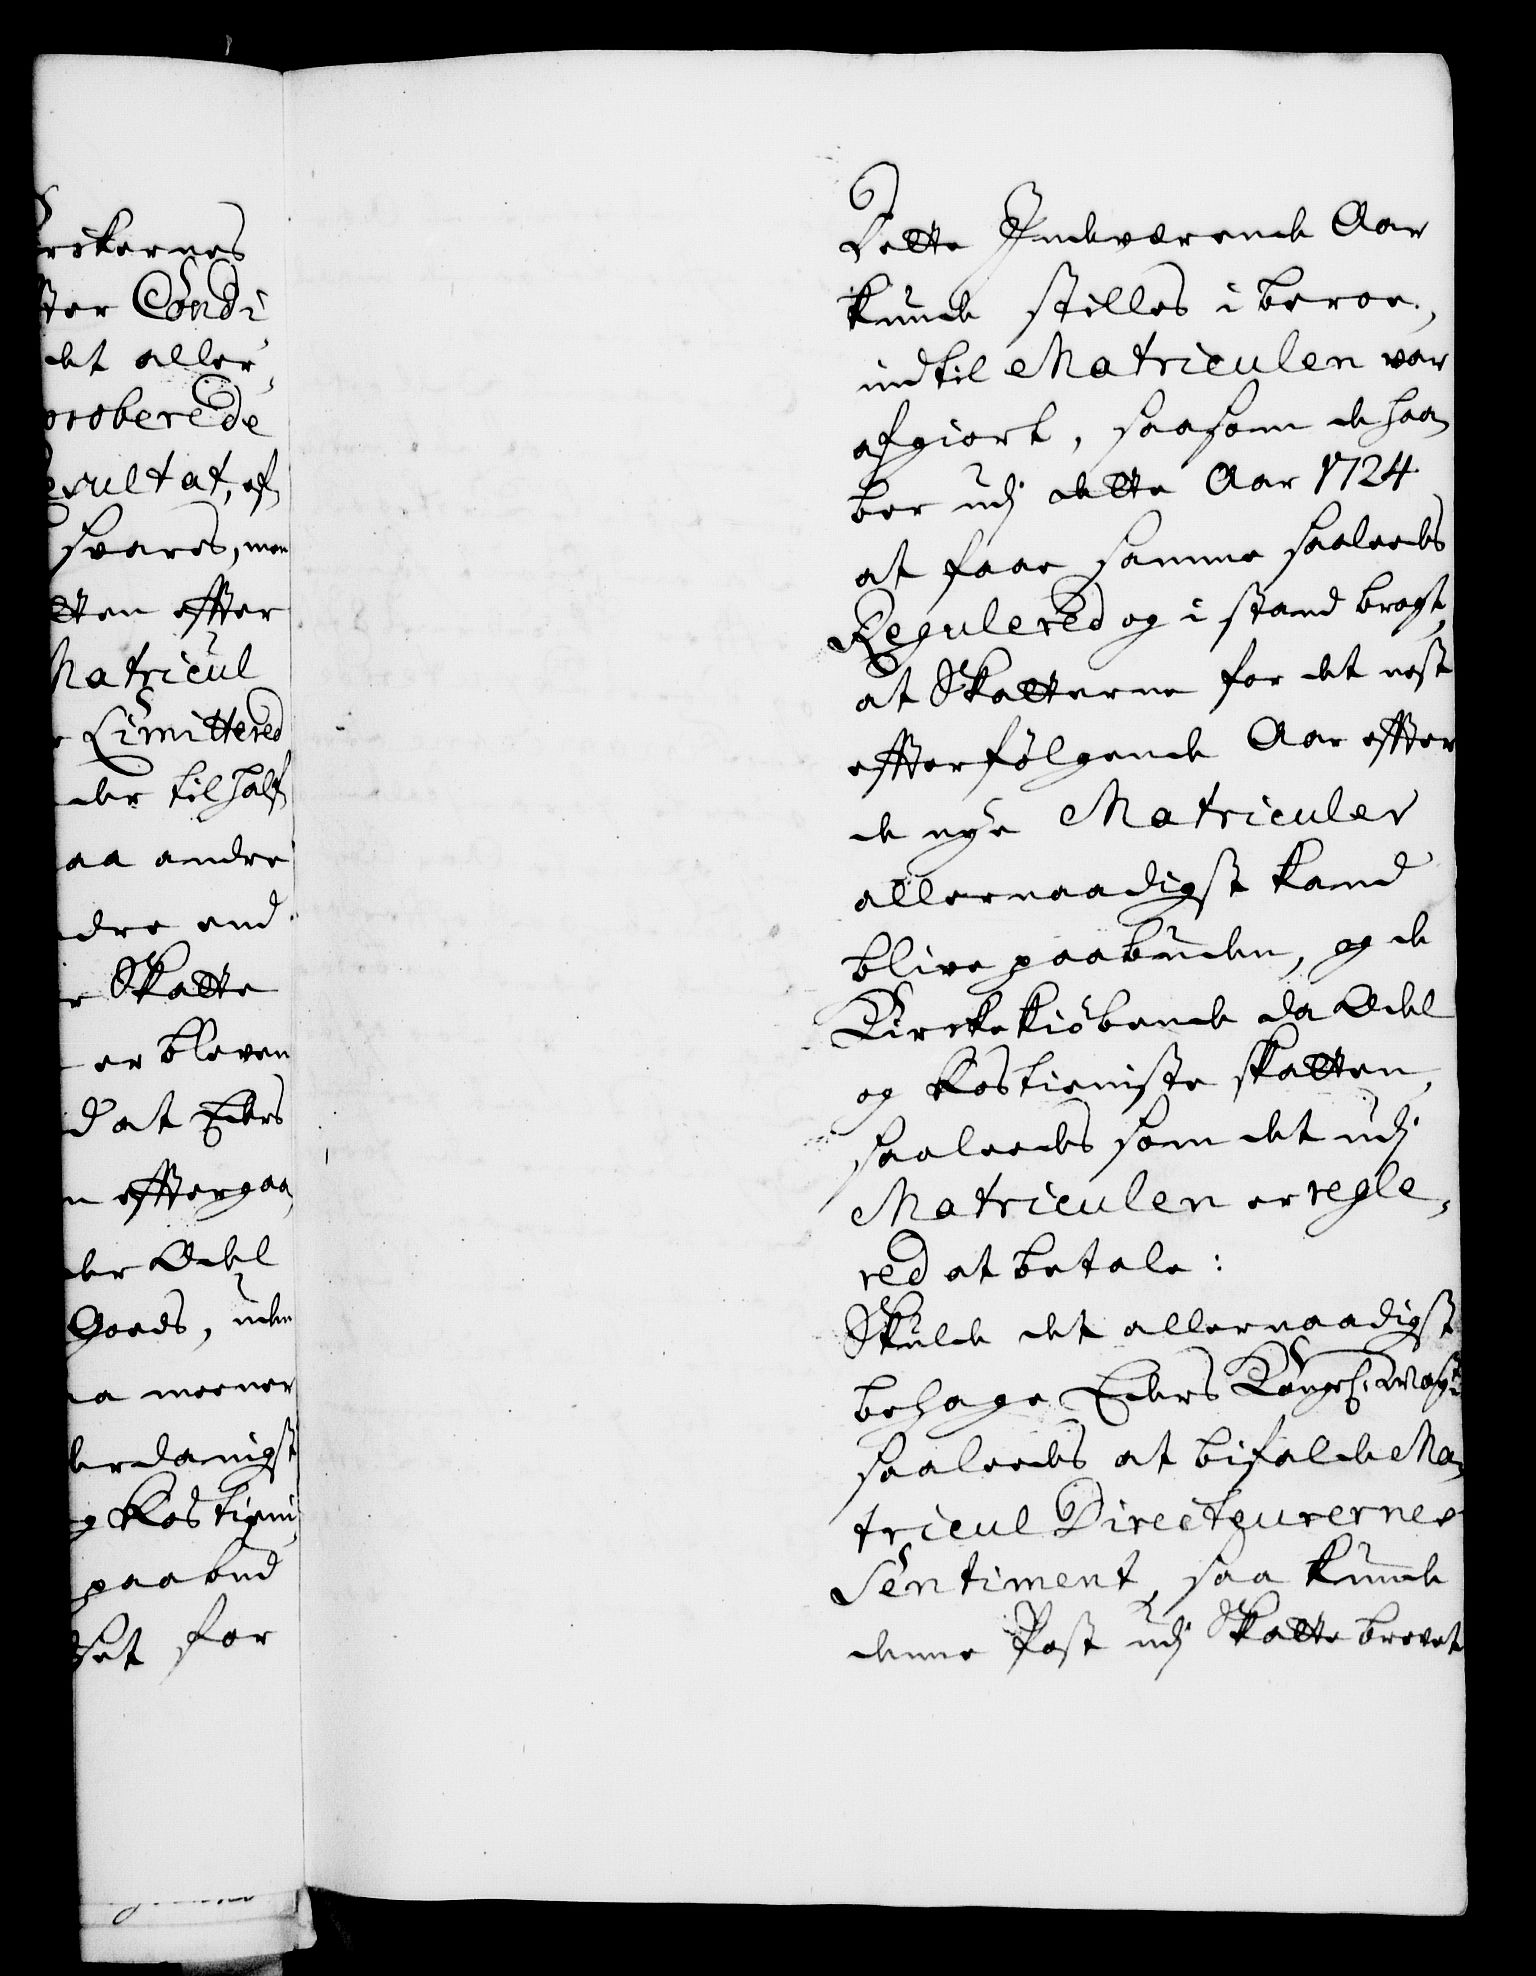 rckernes
ter Condi
det aller,
proberede
esultat, ef
svares, men
tten effter
Matricul
Limittered
der til half
aa andre
dre end
r Skatte
er bleven
d at Eders
n efftergaa,
der Odel
Goeds, uden
a meener
derdanigst
g Rostieni,
paabud
set for
Dette Indeværende Aar
kunde stilles i beroe,
indtil Matriculen var
afgiort, saasom de haa
ber udj dette Aar 1724
at faae samme saaleedes
Regulered og i stand bragt,
at Skatterne for det nest
effterfölgende Aar effter
de nye Matriculer
allernaadigst kand
blive paabuden, og de
Kirckekiöbende da Odel
og Rostieniste skatten,
saaleedes som det udj
Matriculen er regle,
red at betale:
Skulde det allernaadigst
behage Eders Kongel. Mayt
saaleedes at bifalde Ma,
tricul Directeurernes
Sentiment, saa kunde
denne Post udj Skatte brevet